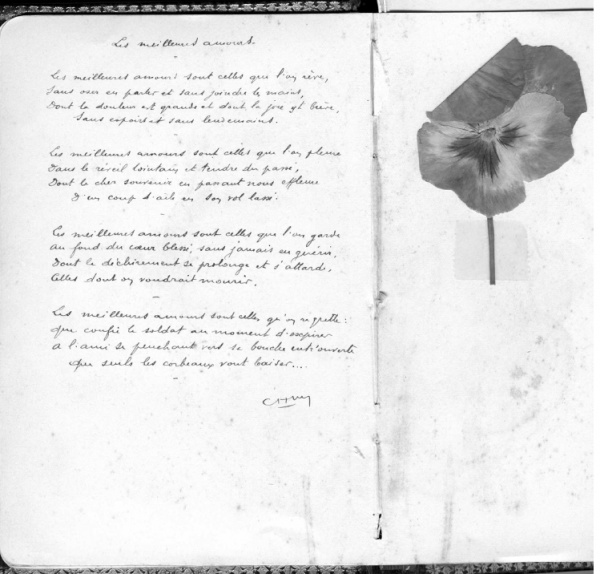 Les meilleurs amours.
Les meilleures amours sont celles que l'on rêve,
Sans oser en parler et sans joindre les mains,
Dont la douleur est grande et dont la joie est brève,
Sans espoirs et sans lendemains.
Les meilleures amours sont celles que l'on pleure
Dans le réveil lointain et tendre du passé,
Dont le cher souvenir en passant nous effleure
D'un coup d'aile en son vol lassé.
Les meilleures amours sont celles que l'on garde
Au fond du cœur blessé, sans jamais en guérir,
Dont le déchirement se prolonge et s'attarde,
Celles dont on voudrait mourir.
Les meilleures amours sont celles qu'on regrette :
Que confie le soldat au moment d'expirer
A l'ami se penchant vers sa bouche entr'ouverte
Que seuls les corbeaux vont baiser...